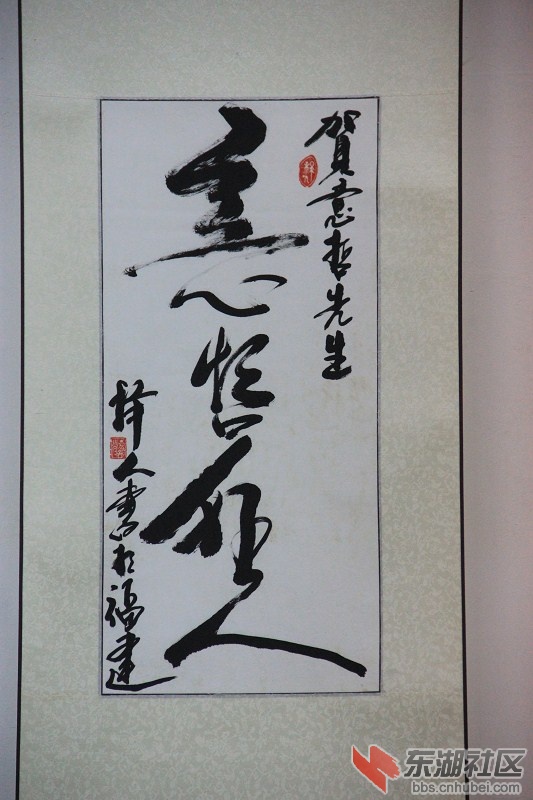 賀意哲先生
意哲狂人
择人書於福建
东湖社区
bbs.cnhubei.com